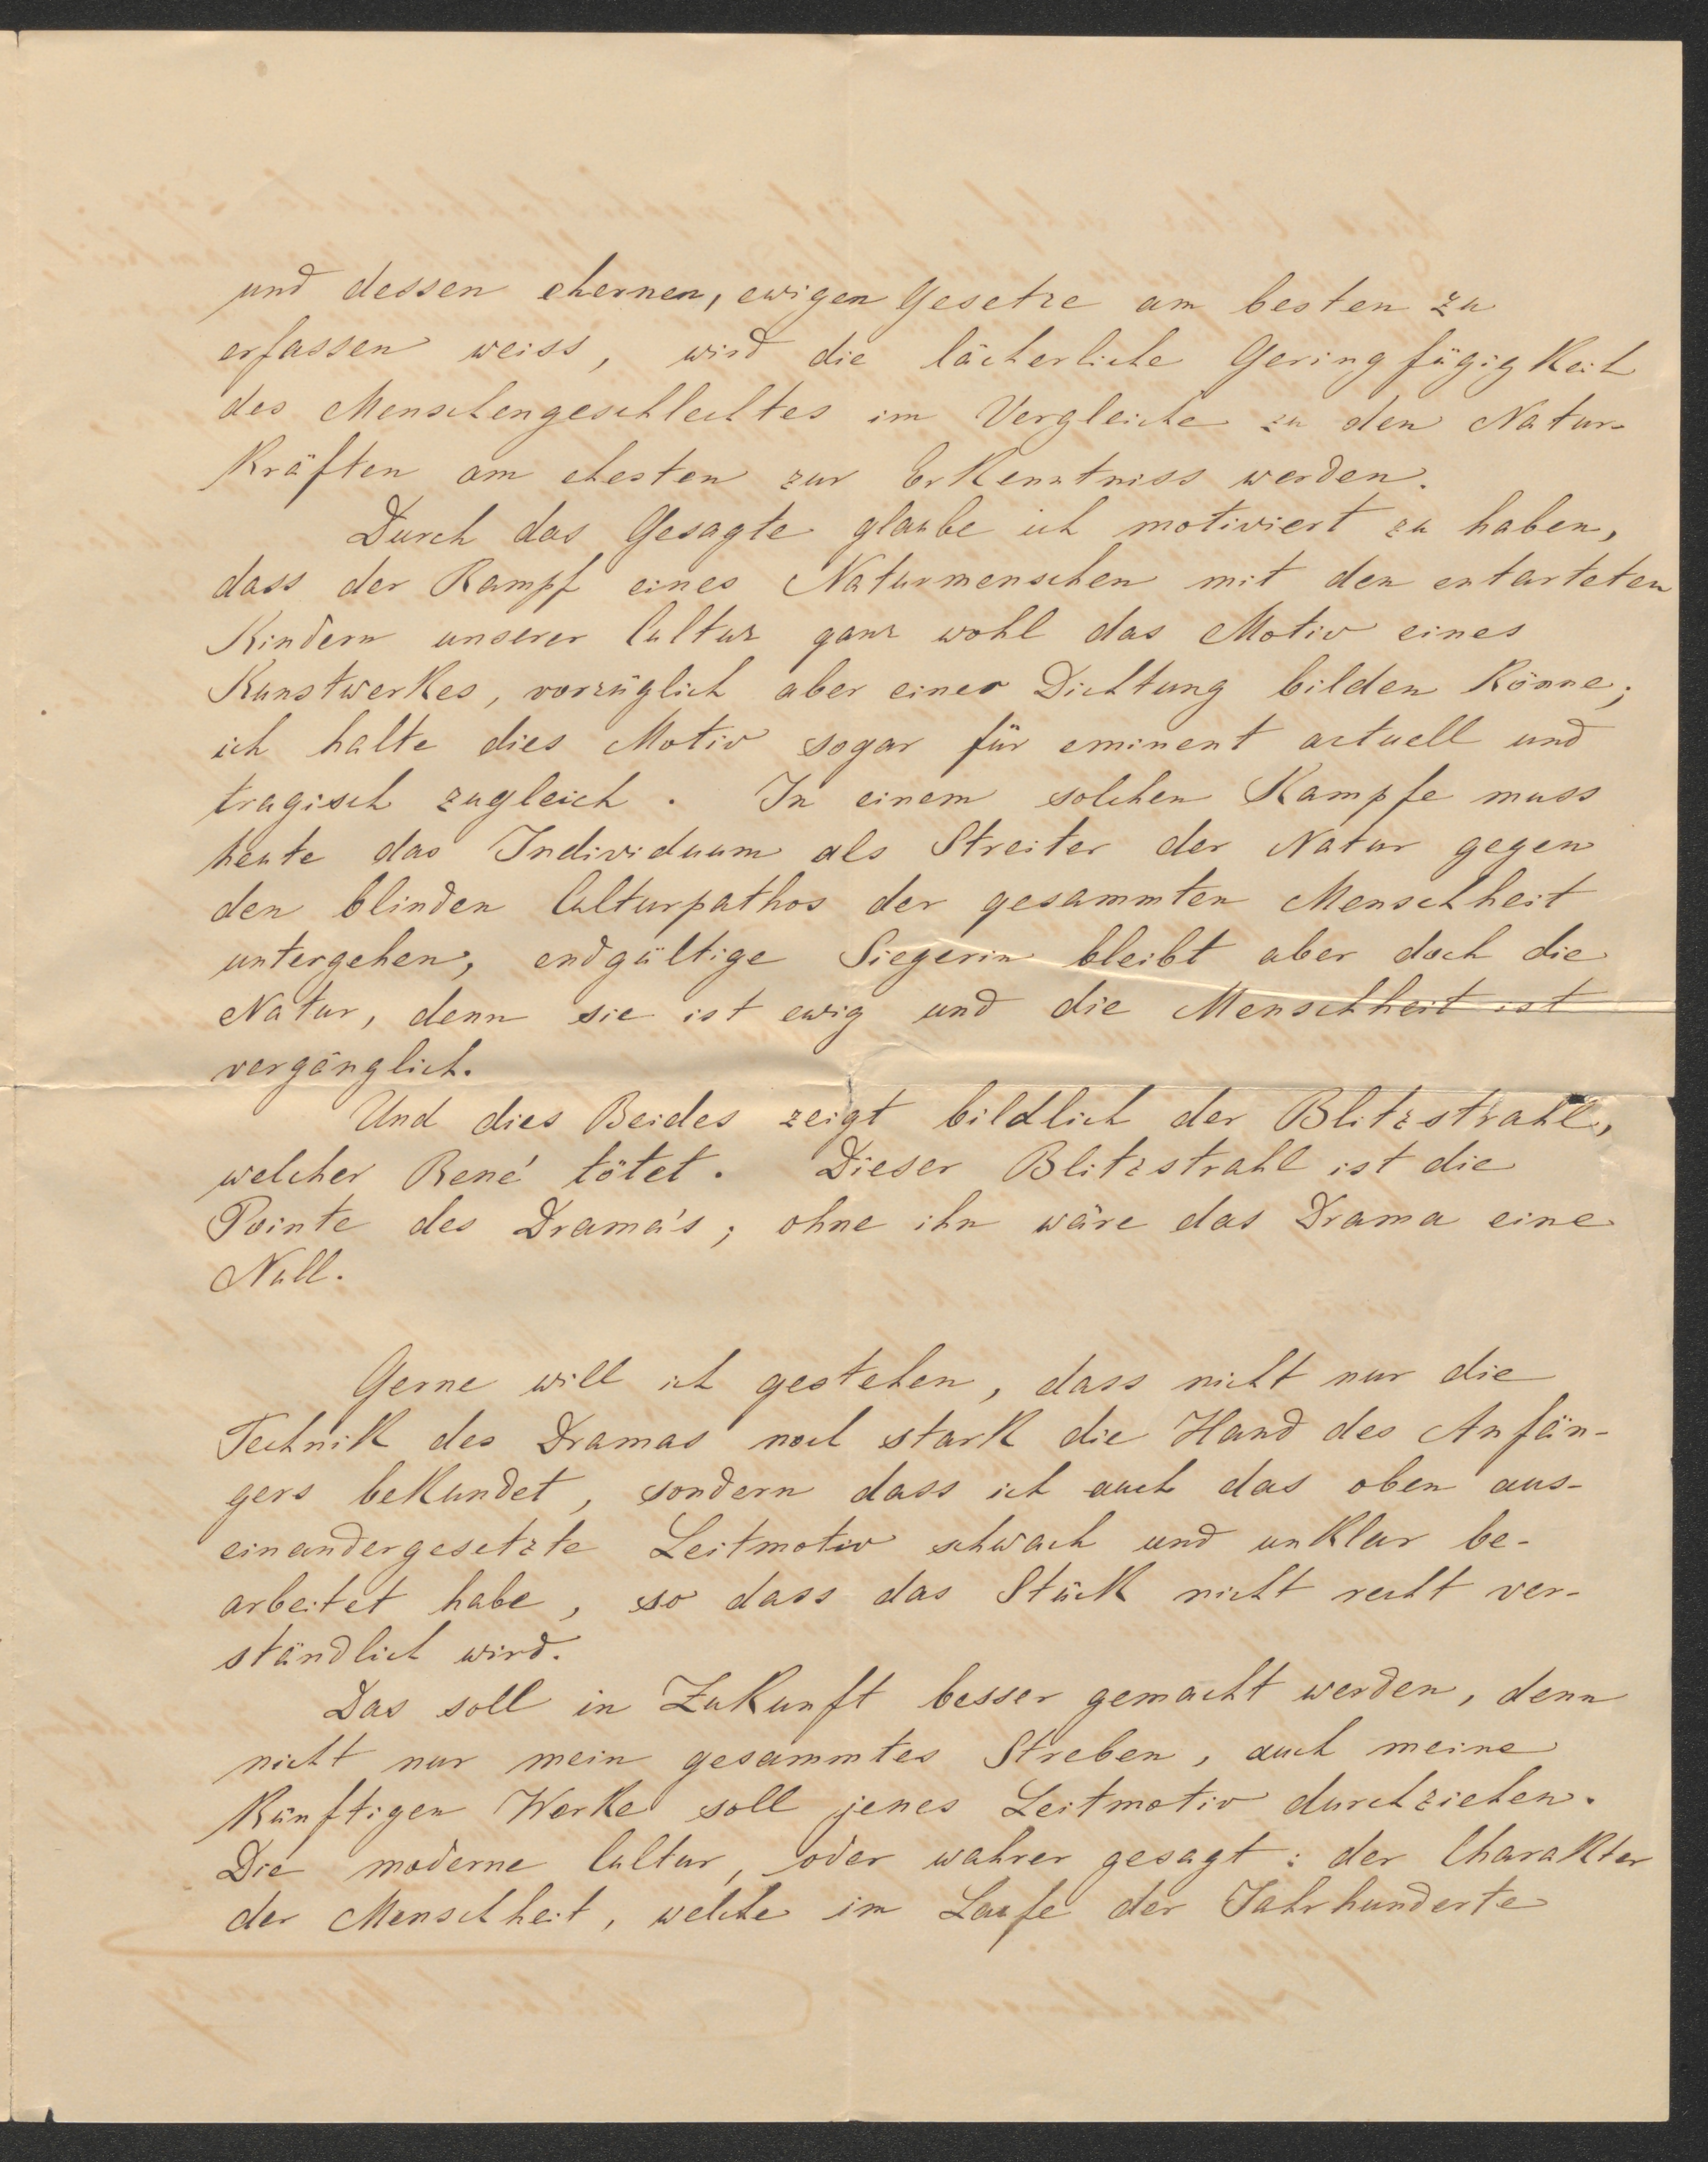 und dessen ehernen, ewigen Gesetze am besten zu
erfassen weiss, wird die lächerliche Geringfügigkeit
des Menschengeschlechtes im Vergleiche zu den Natur-
kräften am ehesten zur Erkenntniss werden.
Durch das Gesagte glaube ich motiviert zu haben,
dass der Kampf eines Naturmenschen mit den entarteten
Kindern unserer Cultur ganz wohl das Motiv eines
Kunstwerkes, vorzüglich aber einer Dichtung bilden könne;
ich halte dies Motiv sogar für eminent actuell und
tragisch zugleich. In einem solchen Kampfe muss
heute das Individuum als Streiter der Natur gegen
den blinden Culturpathos der gesammten Menschheit
untergehen, endgültige Siegerin bleibt aber doch die
Natur, denn sie ist ewig und die Menschheit ist
vergänglich.
Und dies Beides zeigt bildlich der Blitzstrahl,
welcher René tötet. Dieser Blitzstrahl ist die
Pointe des Drama's; ohne ihn wäre das Drama eine
Null.
Gerne will ich gestehen, dass nicht nur die
Technik des Dramas noch stark die Hand des Anfän-
gers bekundet, sondern dass ich auch das oben aus-
einandergesetzte Leitmotiv schwach und unklar be-
arbeitet habe, so dass das Stück nicht recht ver-
ständlich wird.
Das soll in Zukunft besser gemacht werden, denn
nicht nur mein gesammtes Streben, auch meine
künftigen Werke soll jenes Leitmotiv durchziehen.
Die moderne Cultur, oder wahrer gesagt: der Charakter
der Menschheit, welche im Laufe der Jahrhunderte